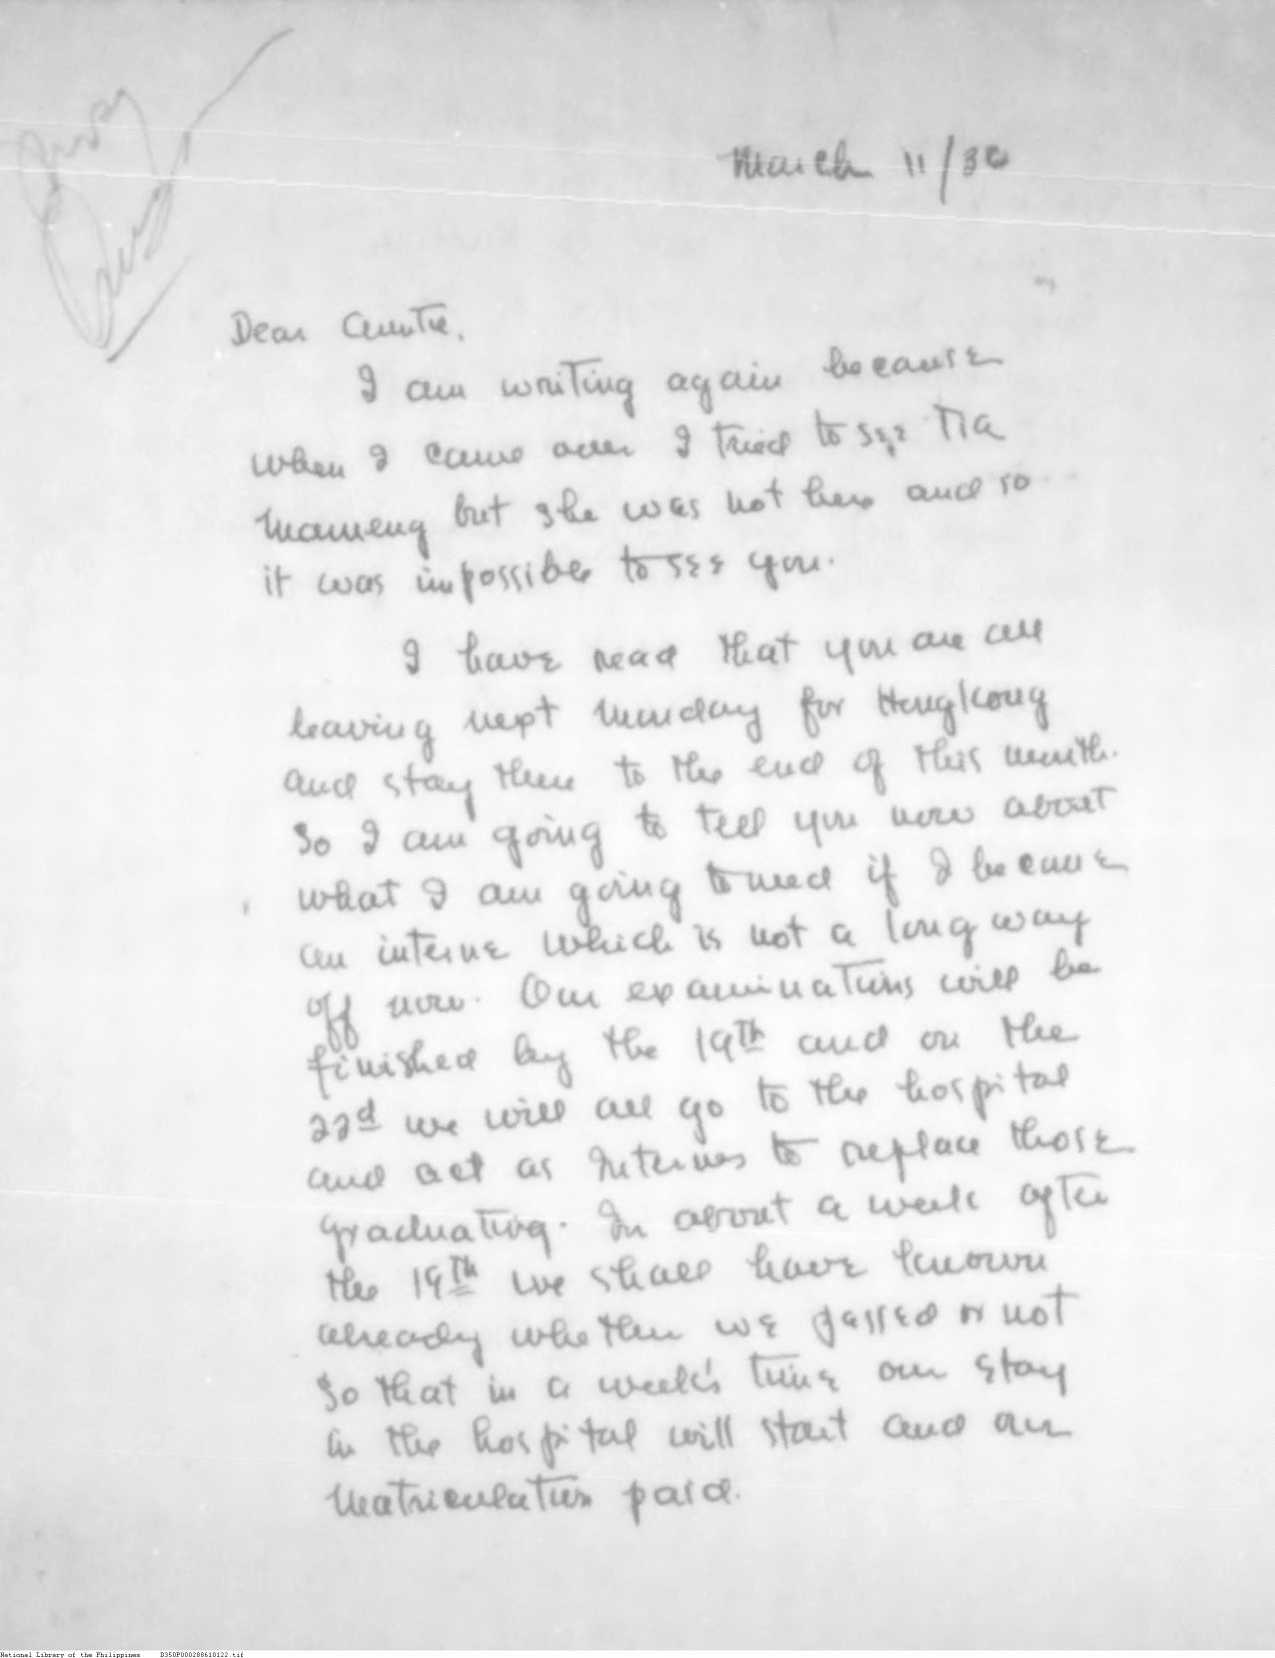 March 11/30
Dear Auntie,
I am writing again because
when I came over I tried to see Tia
Mameng but she was not here and so
it was impossible to see you.
I have read that you are all
leaving next Monday for Hongkong
and stay there to the end of this month.
So I am going to tell you now about
what I am going to need if I became
an interne which is not a long way
off now. Our examinations will be
finished by the 19th and on the
22d we will all go to the hospital
and act as Internes to replace those
graduating. In about a week after
the 19th we shall have known
already whether we passed or not
So that in a week's time our stay
in the hospital will start and our
Matriculation paid.
National Library of the Philippines B350P000288610122.tif